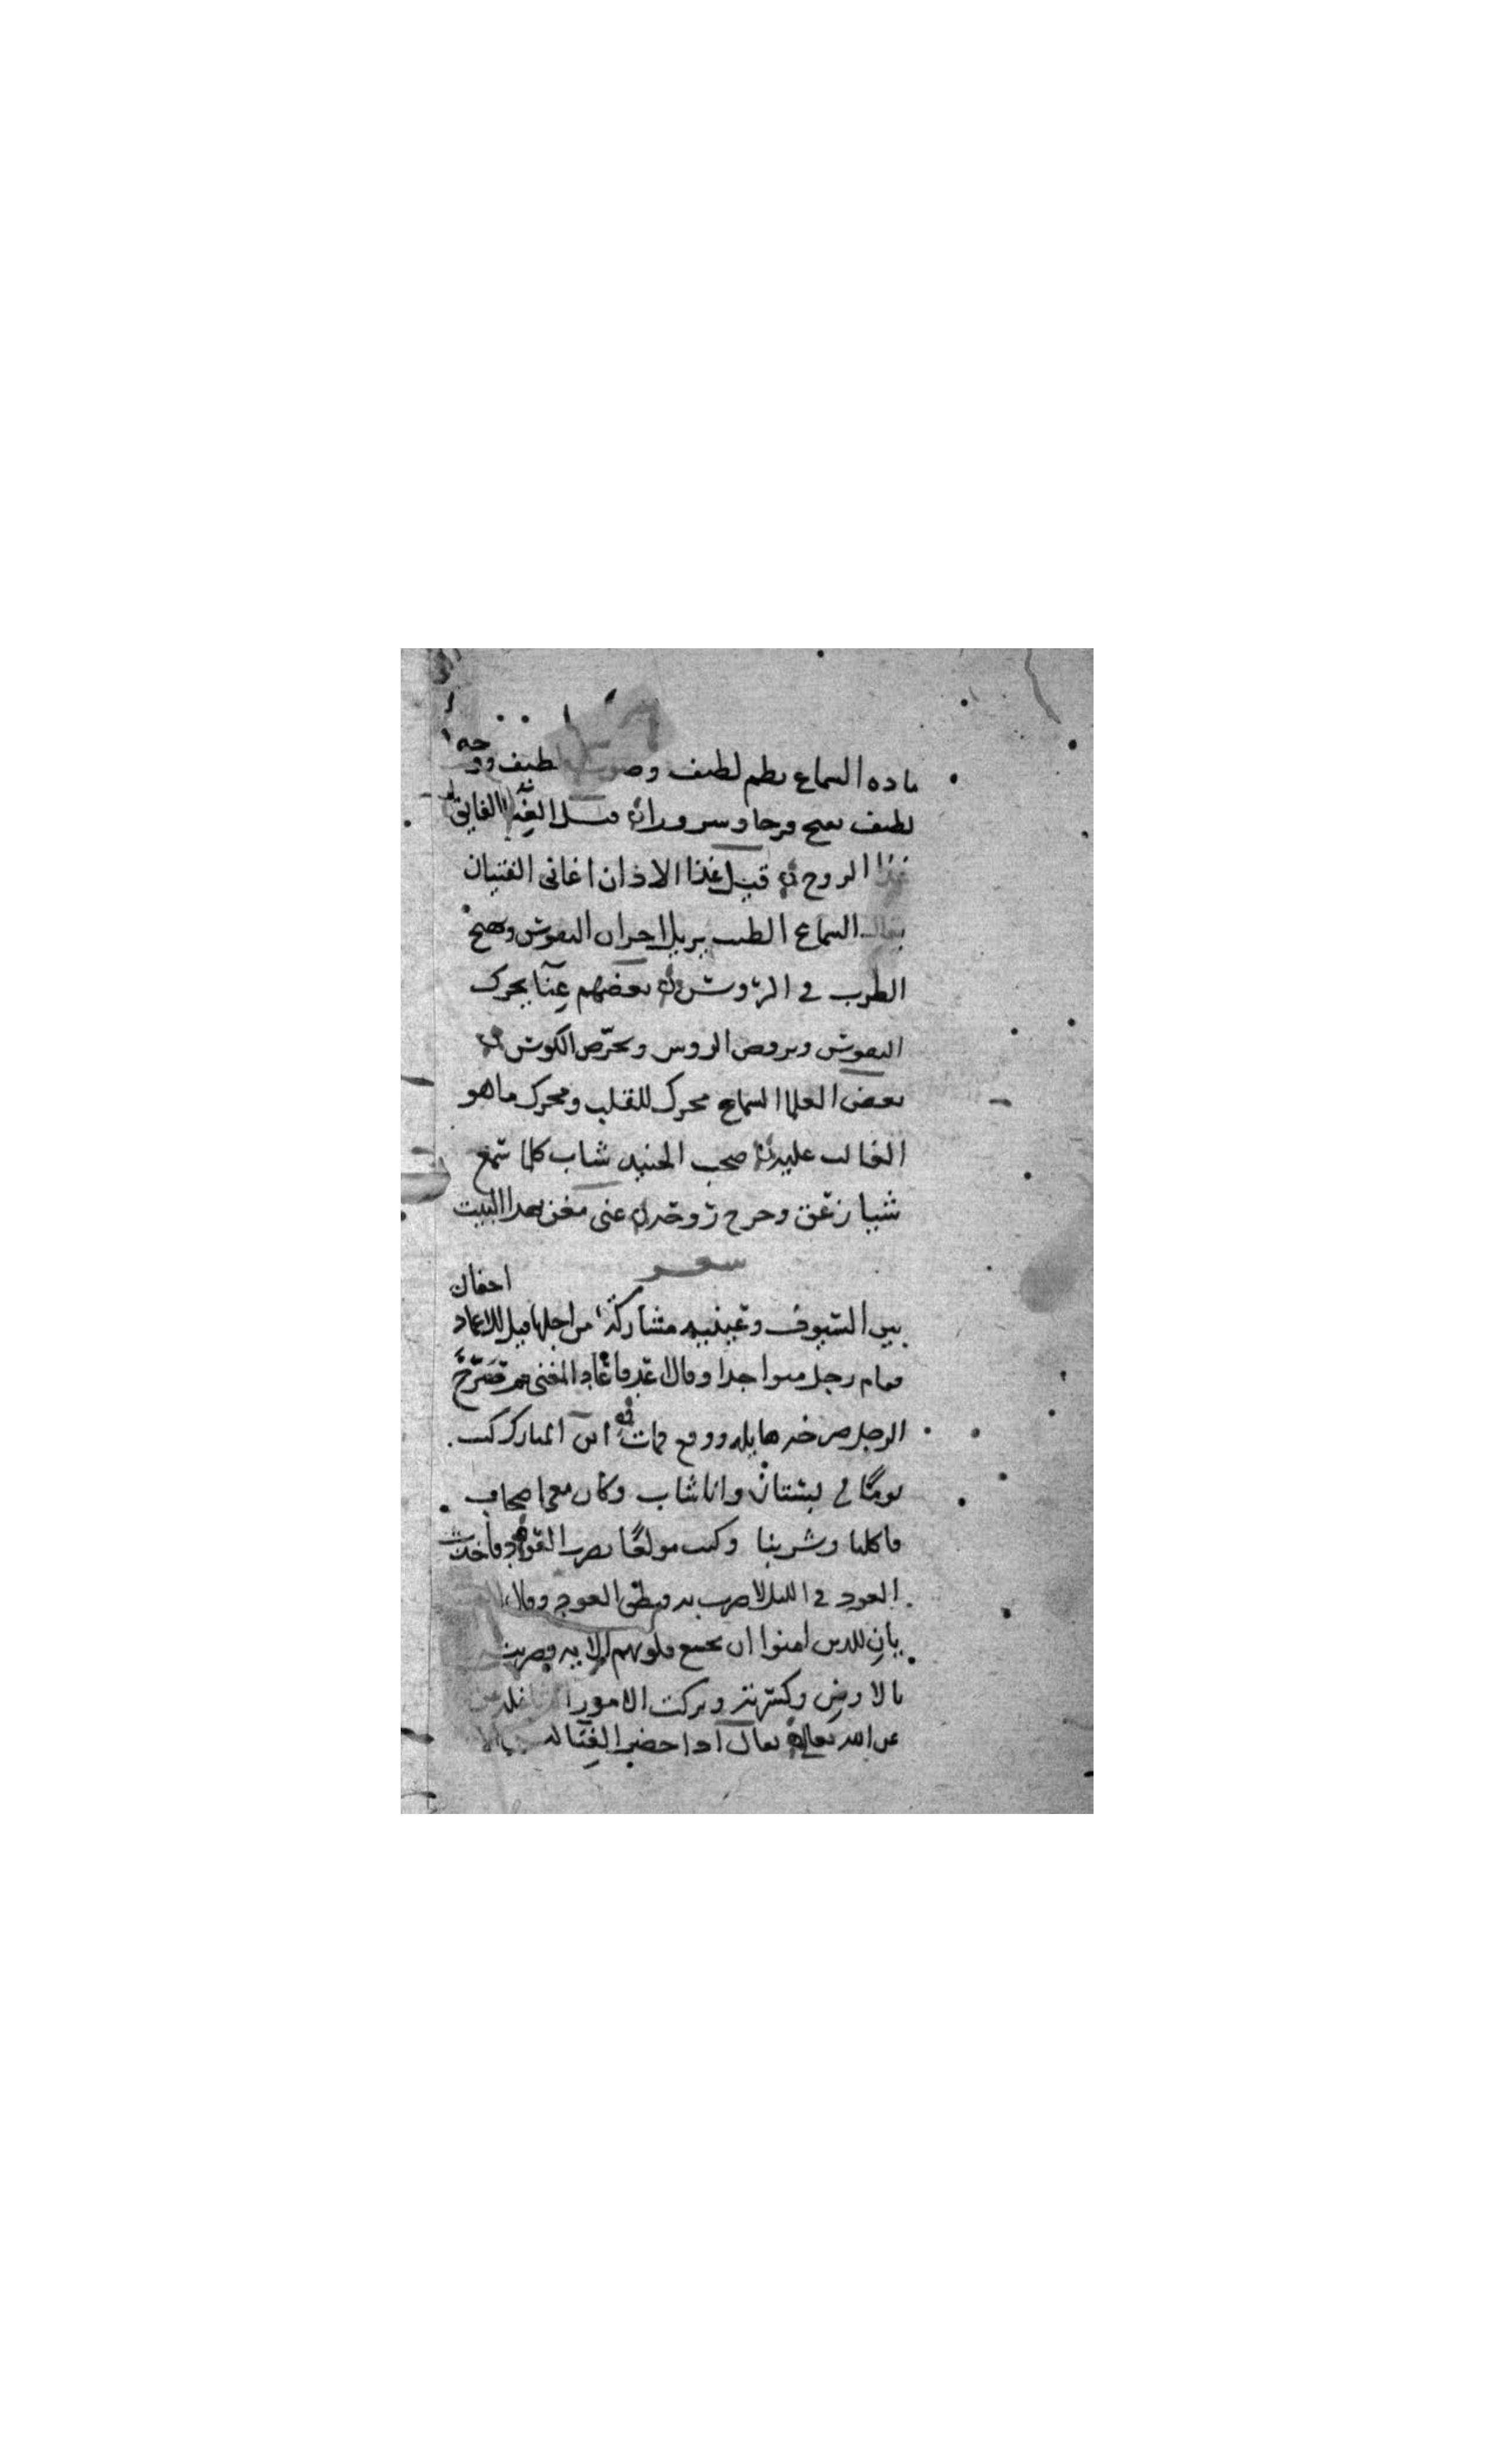 ماده السماع نظم لطيف وصوت لطيف ووجه
لطيف ينتج فرحا وسرورا قيل الغنا الفايق
غذا الروح قيل غذا الاذان اغانى الفتيان
يقال السماع الطيب يزيل احزان النفوس ويهيج
الطرب في الرؤوس بعضهم غنا يحرك
النفوس ويرقص الروس ويحرض الكوس
بعض العلما السماع محرك للقلب ومحرك ما هو
الغالب عليه صحب الجنيد شاب كلما سمع
شيا زعق وخرج روحه غنى مغن بهذا البيت
شعر
بين السيوف وعينيه مشاركة من اجلها قيل للاغماد اجفان
فقام رجل متواجدا وقال اعد فاعاد المغنى فصرخ
الرجل صرخه هايله ووقع فمات ابن المبارك كنت
يوما في بستان وانا شاب وكان معى اصحاب
فاكلنا وشربنا وكنت مولعا بضرب العود فاخذت
العود في الليل لاضرب به فنطق العود وقال
يان للدين امنوا ان تخشع قلوبهم الايه فضربته
بالارض وكسرته وتركت الامور
عن الله تعالى يقال اذا حضر الغنا